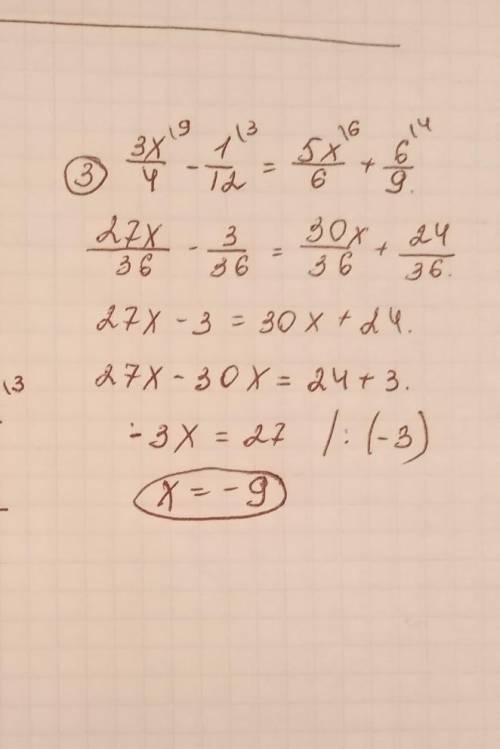 ③ 3x/4 \9 - 1/12 \3 = 5x/6 \6 + 6/9 \4.
27x/36 - 3/36 = 30x/36 + 24/36.
27x - 3 = 30x + 24.
27x - 30x = 24 + 3.
\3
-3x = 27 /: (-3)
x = -9